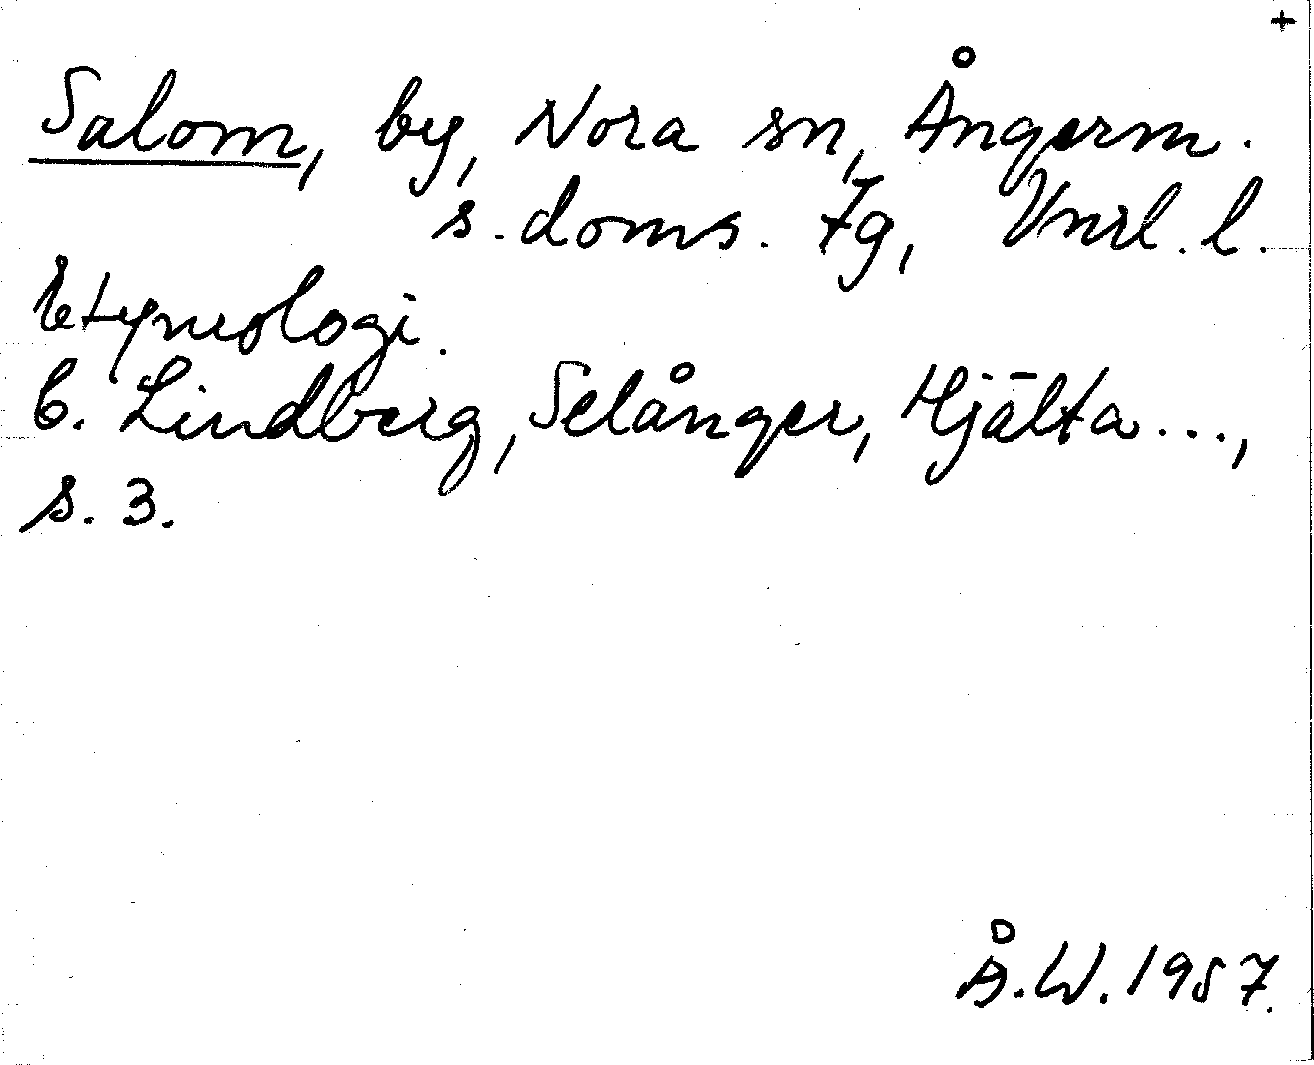 +
Salom, by, Nora sn, Ångerm.
s. doms. fg, Vnrl. l.
Etymologi.
C. Lindberg, Selånger, Hjälta...,
s. 3.
Å.W. 1957.